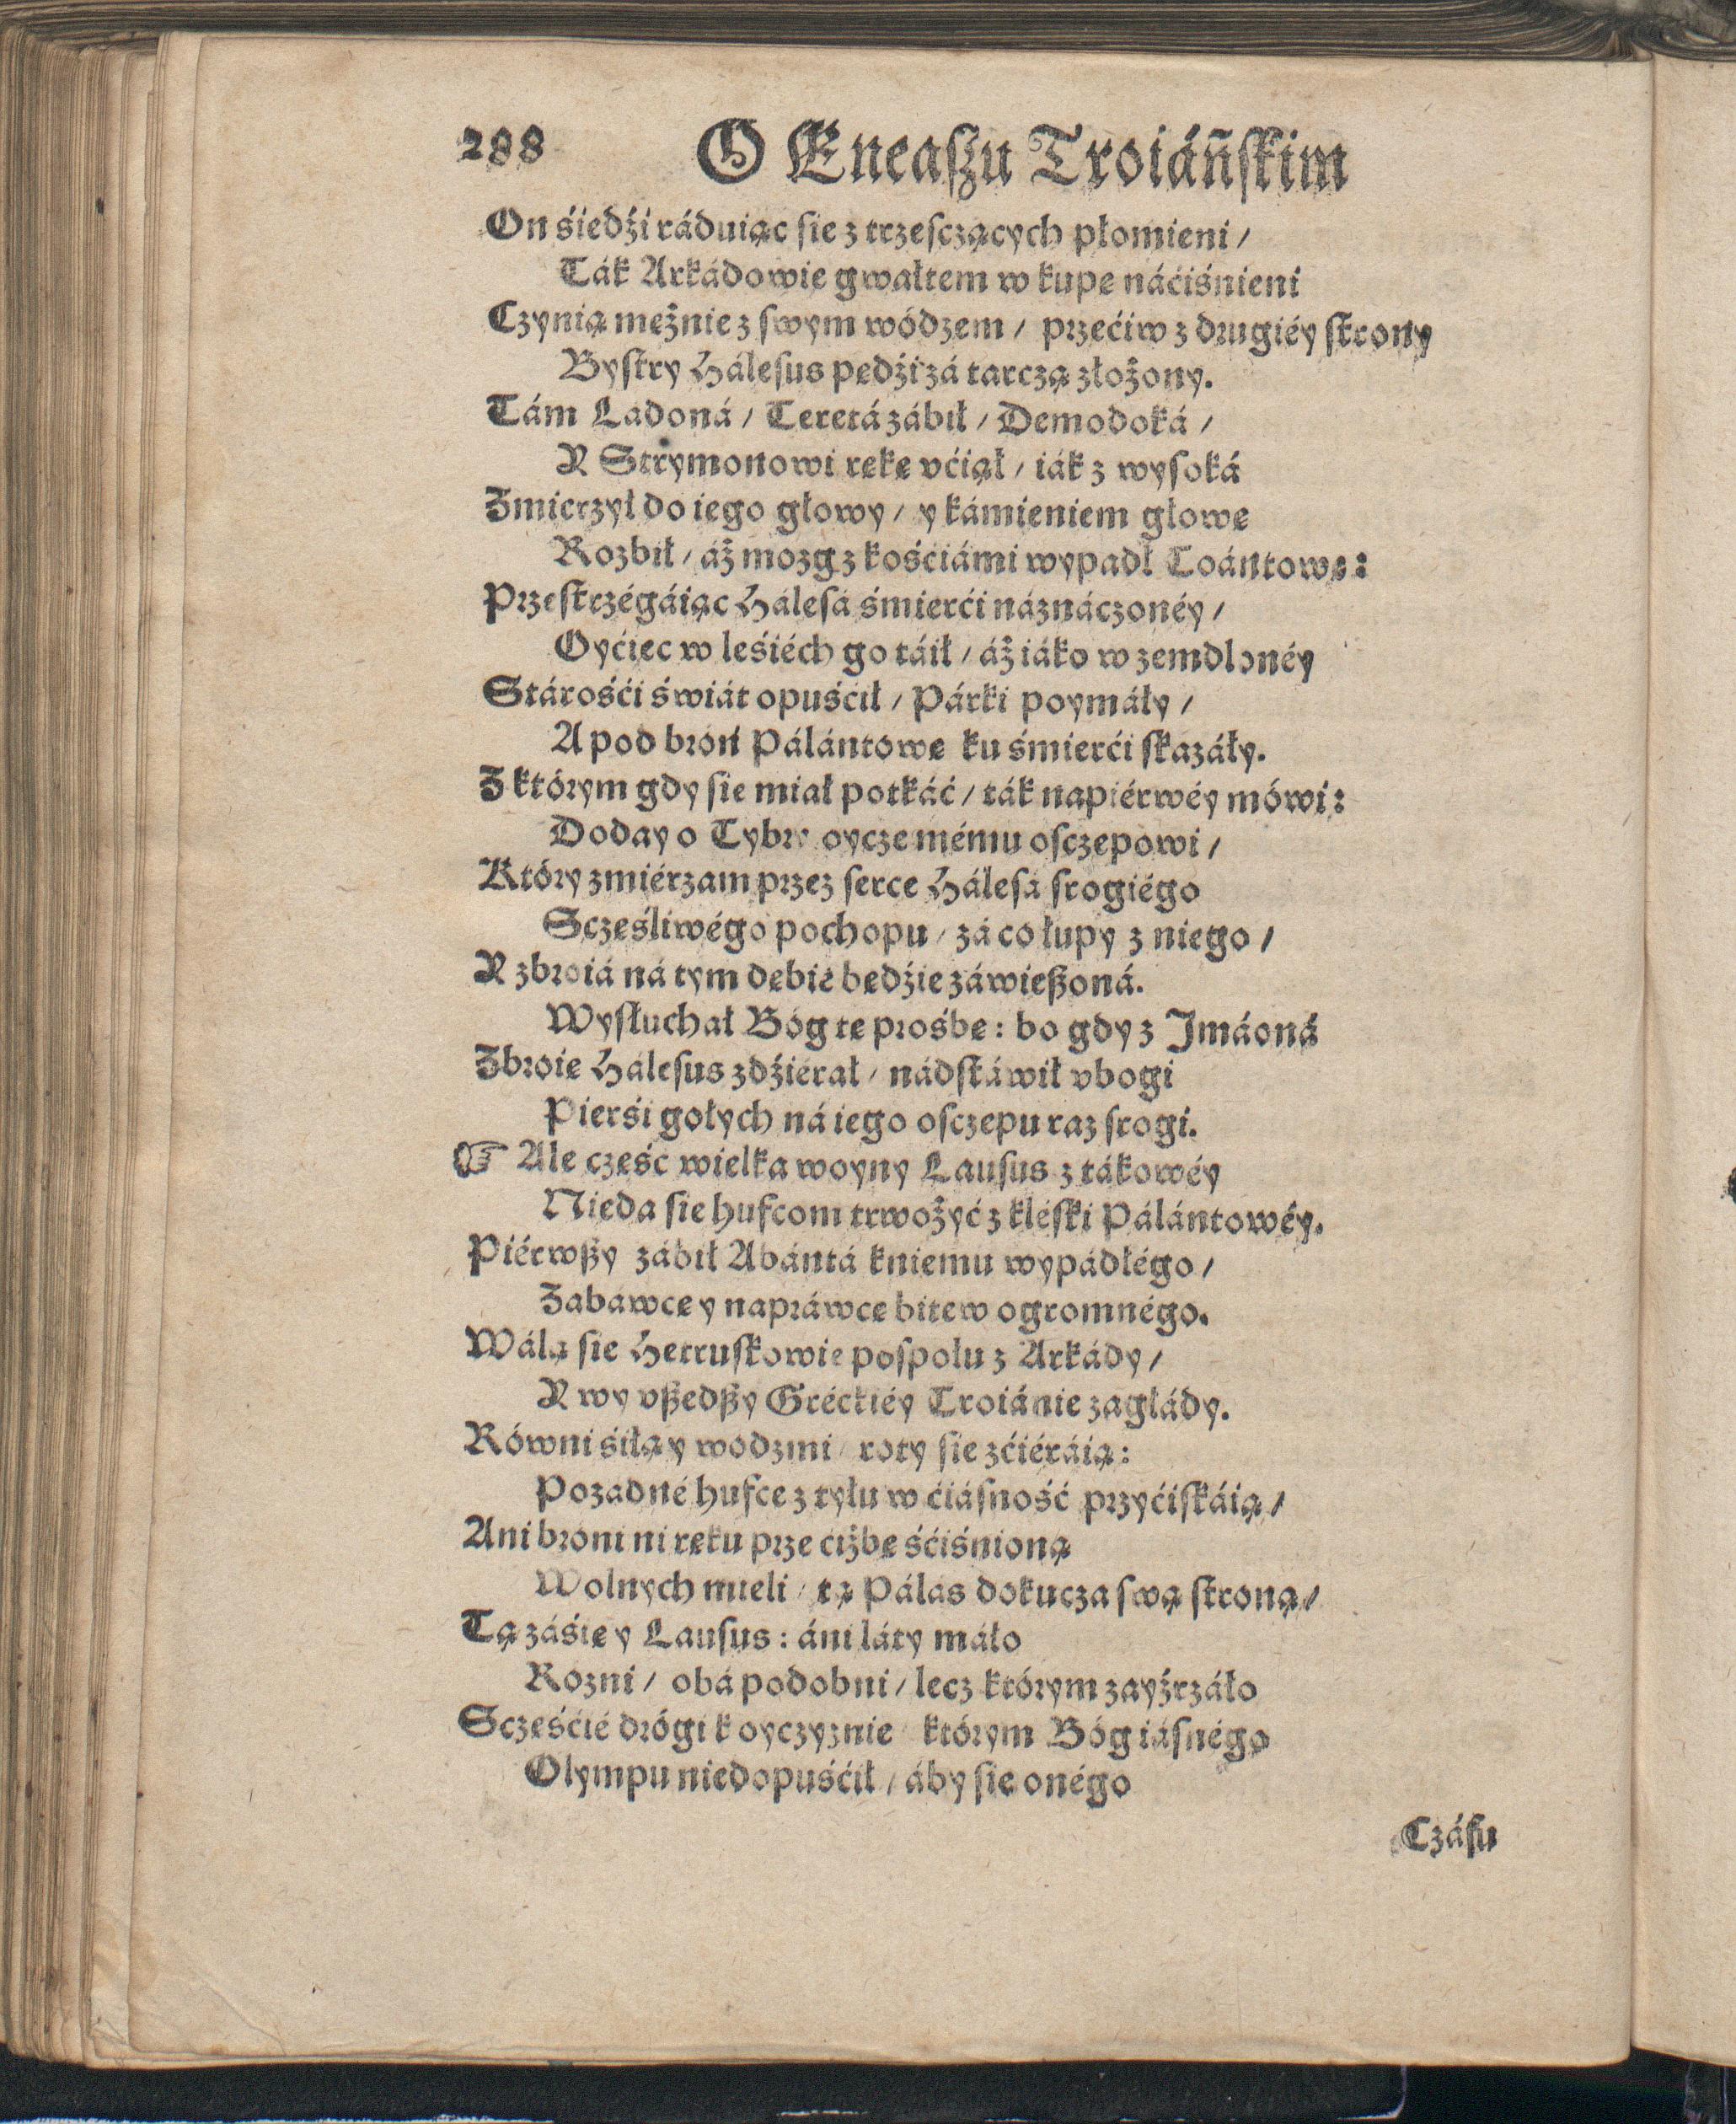 288 O Eneaſzu Troiáñſkim
On śiedźi ráduiąc ſie z trzeſczących płomieni /
Ták Arkádowie gwałtem w kupę náćiśnieni
Czynią mężnie z ſwym wódzem / przećiw z drugiéy ſtrony
Byſtry Háleſus pędźi zá tarczą złożony.
Tám Ladoná / Teretá zábił / Demodoká /
Y Strymonowi rękę vćiął / iák z wyſoká
Zmierzył do iego głowy / y kámieniem głowę
Rozbił / áż mozg z kośćiámi wypadł Toántowę:
Przeſtrzégáiąc Háleſá śmierći náznáczonéy /
Oyćiec w leśiéch go táił / áż iáko w zemdlonéy
Stárośći świát opuśćił / Párki poymáły /
A pod broń Pálántowę ku śmierći ſkazáły.
Z którym gdy ſie miał potkáć / ták napiérwéy mówi:
Doday o Tybry oycze mému oſczepowi /
Który zmiérzam przez ſerce Háleſá ſrogiégo
Sczęśliwégo pochopu / zá co łupy z niego /
Y zbroiá ná tym dębie będźie záwießoná.
Wyſłuchał Bóg tę prośbę: bo gdy z Jmáoná
Zbroię Háleſus zdźiérał / nádſtáwił vbogi
Pierśi gołych ná iego oſczepu raz ſrogi.
☞ Ale część wielka woyny Lauſus z tákowéy
Nieda ſie hufcom trwożyć z klęſki Pálántowéy.
Piérwßy zábił Abántá kniemu wypádłégo /
Zabawcę y napráwcę bitew ogromnégo.
Wálą ſie Hetruſkowie poſpołu z Arkády /
Y wy vßedßy Gréckiéy Troiánie zagłády.
Równi śiłą y wodzmi / roty ſie zćiéráią:
Pozadné hufce z tyłu w ćiáſność przyćiſkáią /
Ani broni ni ręku prze ciżbę śćiśnioną
Wolnych mieli / tą Pálas dokucza ſwą ſtroną /
Tą záśię y Lauſus: áni láty máło
Rozni / obá podobni / lecz którym zayźrzáło
Sczęśćié drógi k oyczyznie / którym Bóg iáſnégo
Olympu niedopuśćił / áby ſie onégo
Czáſu